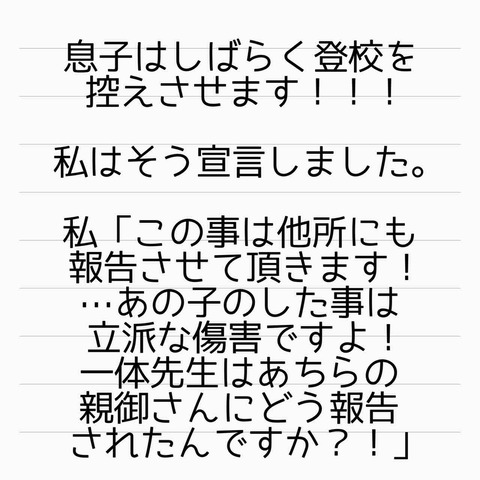 息子はしばらく登校を
控えさせます！！！
私はそう宣言しました。
私「この事は他所にも
報告させて頂きます！
…あの子のした事は
立派な傷害ですよ！
一体先生はあちらの
親御さんにどう報告
されたんですか？！」